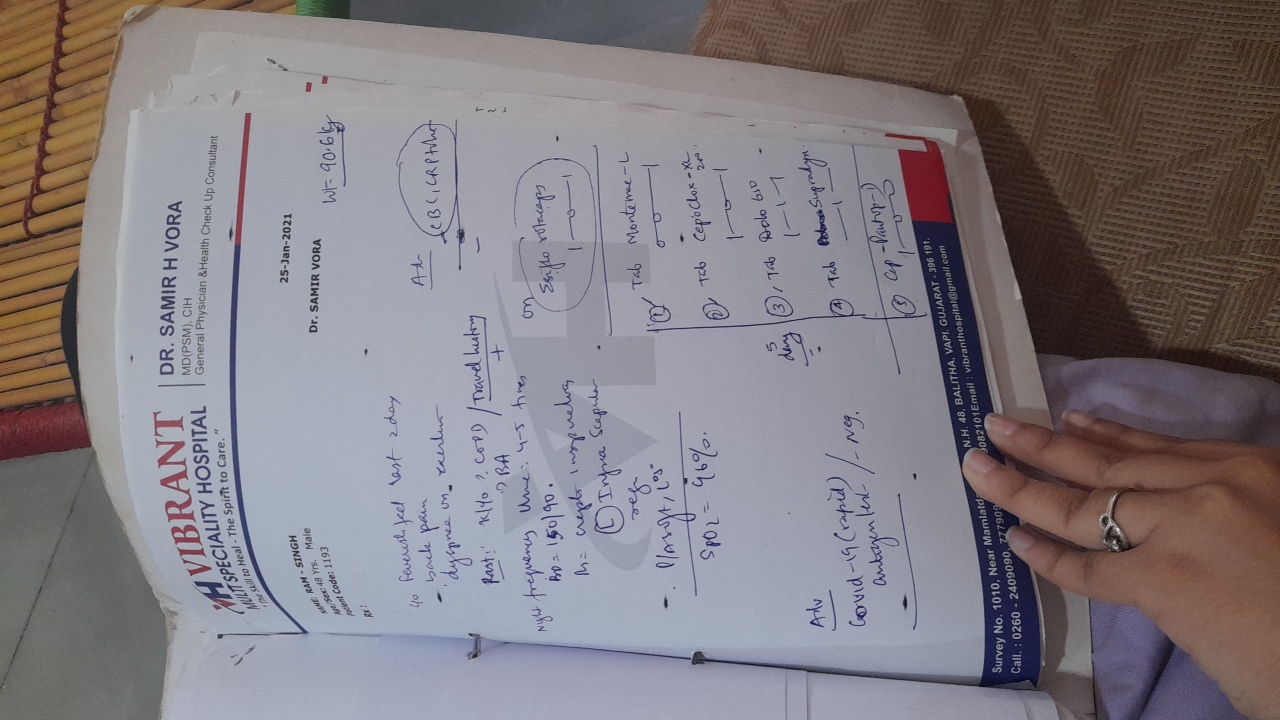 VH VIBRANT
MULTI SPECIALITY HOSPITAL
"The Skill to Heal - The Spirit to Care."
DR. SAMIR H VORA
MD(PSM), CIH
General Physician &Health Check Up Consultant
25-Jan-2021
NAME: RAM - SINGH
Age/Sex: 48 Yrs. Male
Patient Code: 1193
Rx :
Dr. SAMIR VORA
Wt- 90.6 kg
feverish feel last 2 day
back pain
dyspnea on exertion
Past: K/40 ? COPD / Travel history
? BA +
Night frequency Urine: 4-5 times
BP = 150/90.
(L) Infra Scapular
P/A soft,
SPO2 = 96%.
Adv
Covid-19 (rapid)
antigen test /- Neg.
Adv
CBC, CRP
on
Esiflo rotacaps
1 - 0 - 1
5 day
① Tab Montemac-L
0 - 0 - 1
② Tab Cepoclox-XL
200.
1 - 0 - 1
③ Tab Dolo 650
1 - 1 - 1
④ Tab Supradyn.
- 1 -
⑤ Cap - Pantop-D
1 - 0 - 0
VH
Survey No. 1010, Near Mamlatda N.H. 48, BALITHA, VAPI. GUJARAT - 396 191.
Call. : 0260 - 2409090, 777909 9082101 Email : vibranthospital@gmail.com